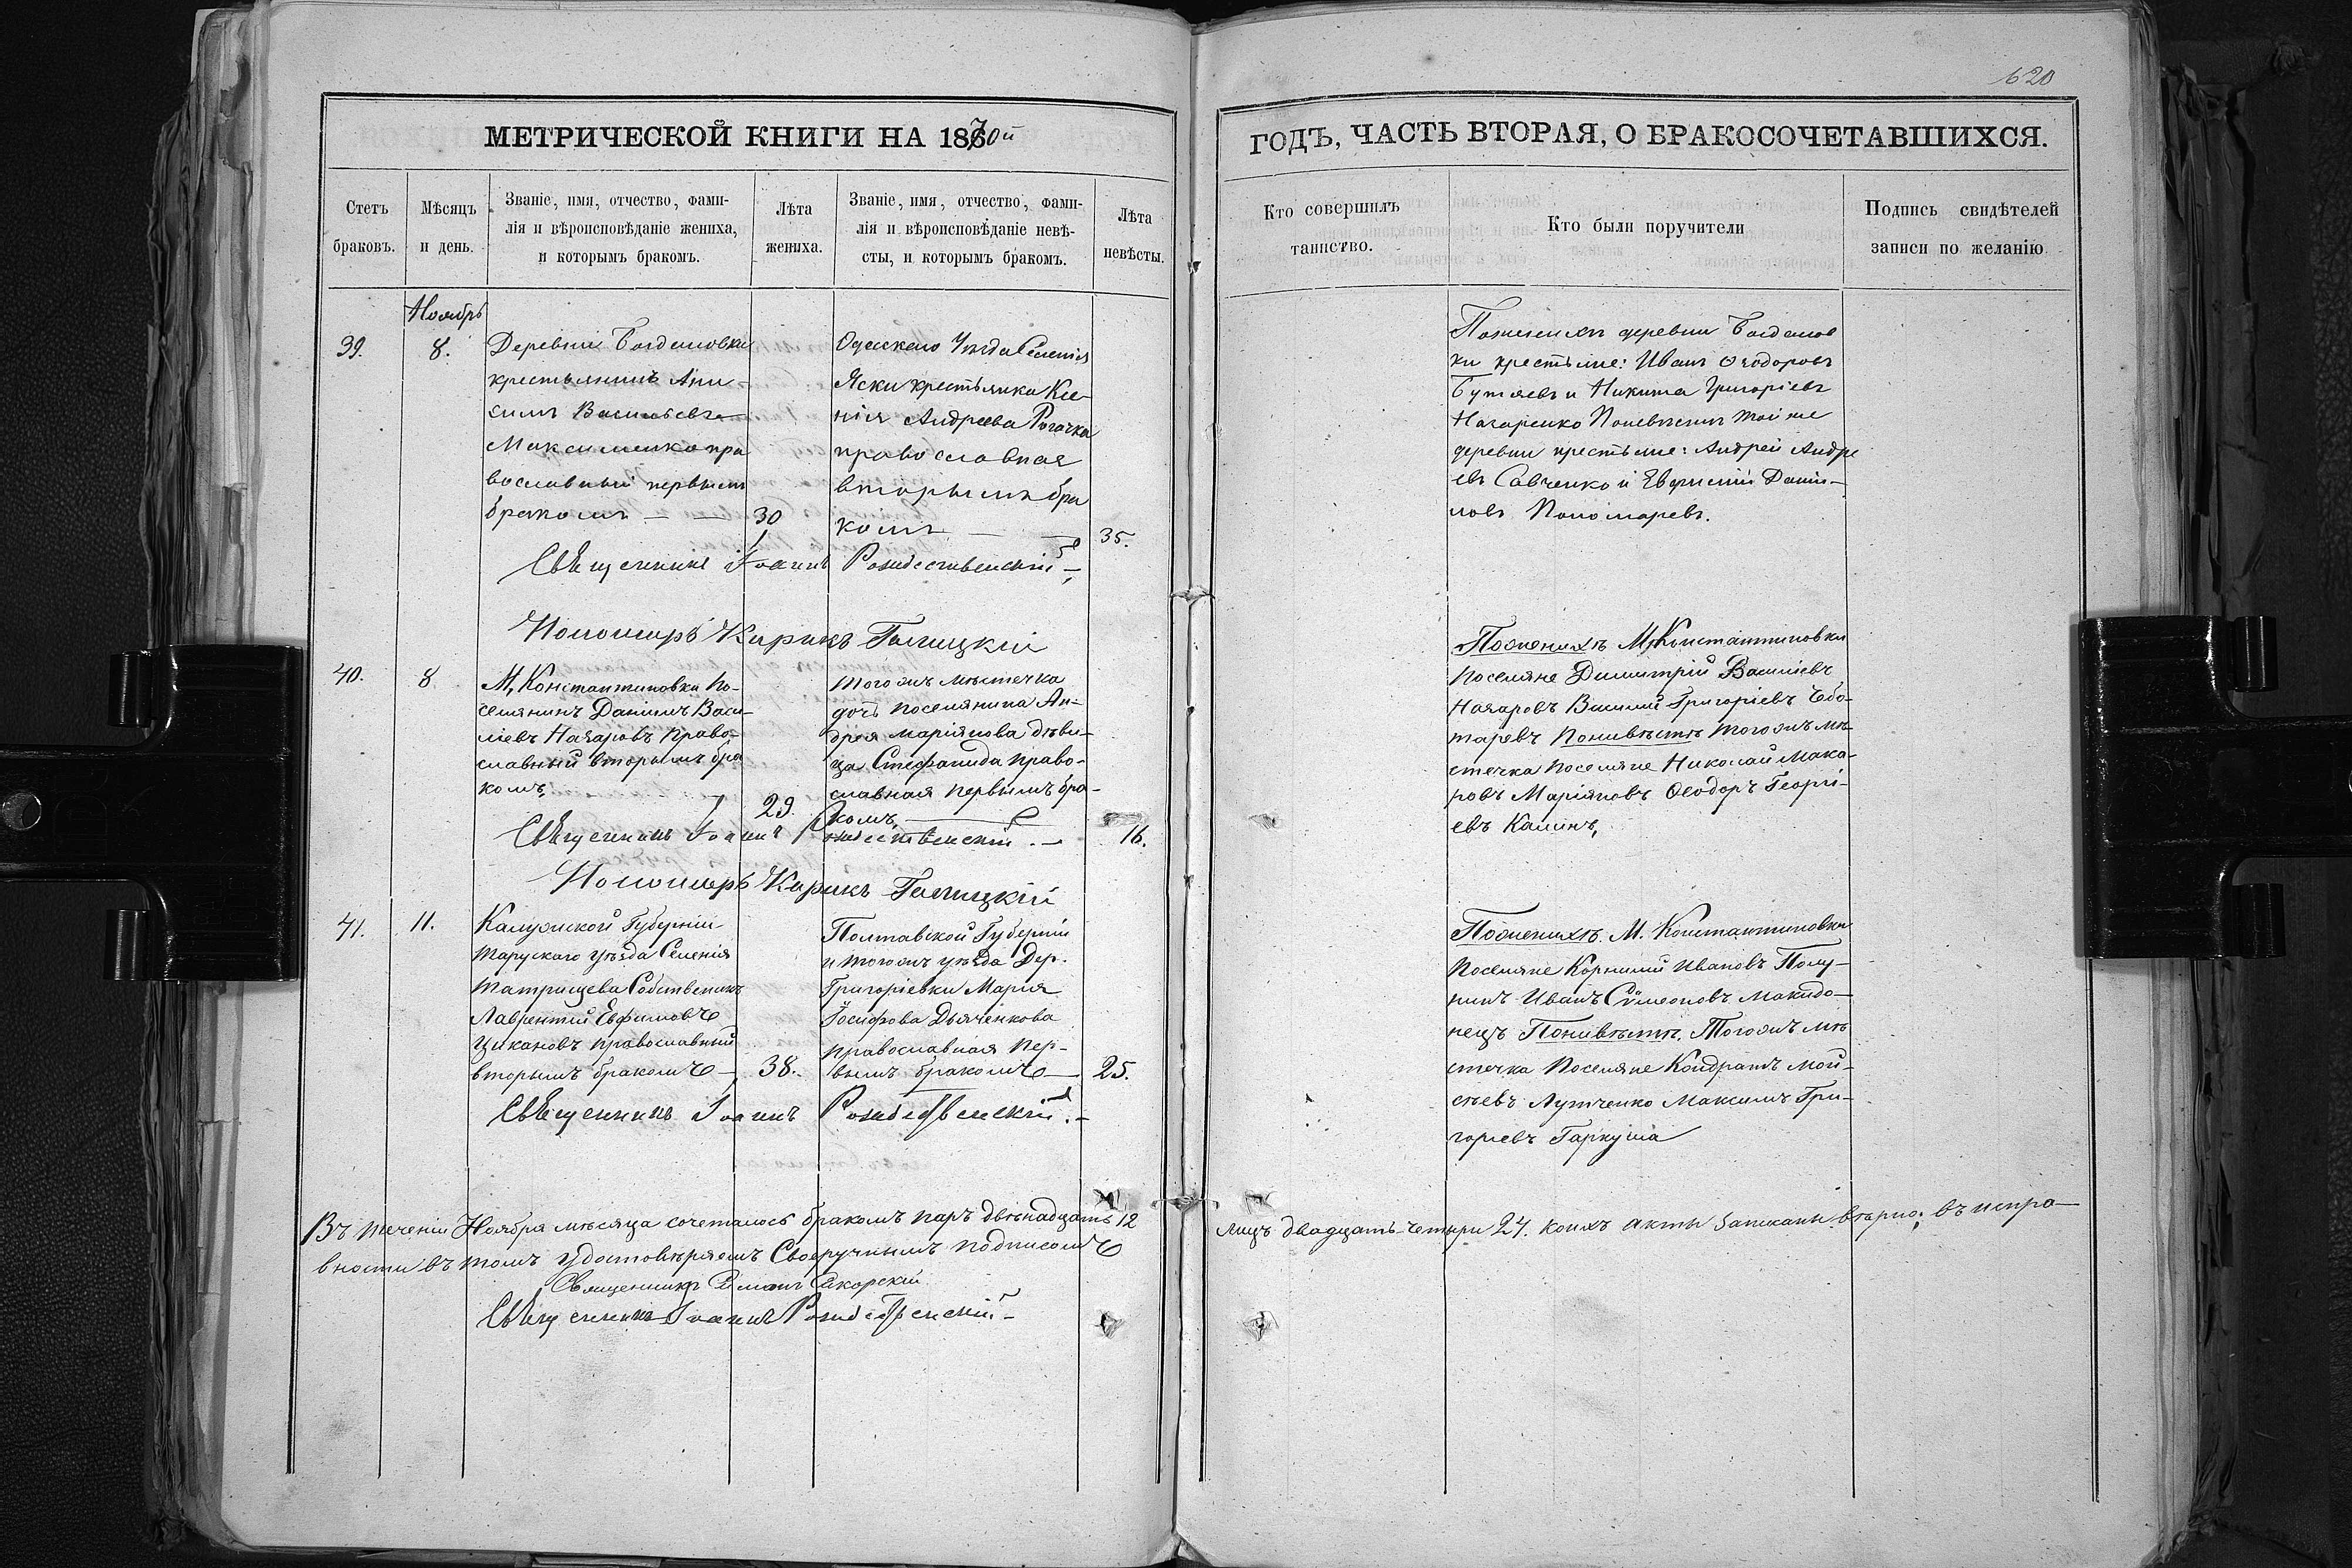 620
МЕТРИЧЕСКОЙ КНИГИ НА 1870й
ГОДЪ, ЧАСТЬ ВТОРАЯ, О БРАКОСОЧЕТАВШИХСЯ.
Счетъ
браковъ.
Мѣсяцъ
и день.
Званіе, имя, отчество, фами-
лія и вѣроисповѣданіе жениха,
и которымъ бракомъ.
Лѣта
жениха.
Званіе, имя, отчество, фами-
лія и вѣроисповѣданіе невѣ-
сты, и которымъ бракомъ.
Лѣта
невѣсты.
Кто совершилъ
таинство.
Кто были поручители
Подпись свидѣтелей
записи по желанію
Ноябрь
39.
8.
Деревни Богдановки
крестьянинъ Ани-
симъ Васильевъ
Максименко пра
вославный первымъ
бракомъ — —
30
Одесскаго Уѣзда Селенія
Яски крестьянка Ксе-
нія Андреева Рогачка
православная
вторымъ бра
комъ —
35.
Поженихѣ деревни Богданов
ки крестьяне: Иванъ Ѳеодоровъ
Бутяевъ и Никита Григоріевъ
Назаренко Поневѣстѣ той же
деревни крестьяне: Андрей Андре
евъ Савченко и Евфимій Дани-
ловъ Пономаревъ.
Священникъ Іоаннъ Рождественскій
Пономарь Кирикъ Галицкій
40.
8
М. Константиновки По-
селянинъ Даніилъ Васи-
ліевъ Назаровъ Право-
славный вторымъ бра
комъ,
29.
тогожъ мѣстечка
дочь поселянина Ан-
дрея Маріянова дѣви-
ца Стефанида право-
славная первымъ бра-
комъ,
16.
Поженихѣ М. Константиновки
поселяне Димитрій Василіевъ
Назаровъ Василий Григоріевъ Чебо-
таревъ Поневѣстѣ тогожъ мѣ
стечка поселяне Николай Мака-
ровъ Маріяновъ Ѳеодоръ Георгі-
евъ Калинъ,
Священникъ Іоаннъ Рождественскій. —
Пономарь Кирикъ Галицкій
41.
11.
Калужской Губерніи
Таруского уѣзда Селенія
Татрищева Собственикъ
Лаврентій Евфимовъ
Цикановъ православный
вторымъ бракомъ —
38.
Полтавской Губерніи
и тогожъ уѣзда Дер.
Григоріевки Марія
Іосифова Дьяченкова
православная пер-
вымъ бракомъ —
25.
Поженихѣ. М. Константиновки
Поселяне Корнилій Ивановъ Полу-
нинъ Иванъ Сѵмеоновъ Македо-
нецъ Поневѣстѣ. Тогожъ мѣ
стечка Поселяне Кондратъ Мой-
сеевъ Лутченко Максимъ Гри-
горіевъ Гаркуша
Священникъ Іоаннъ Рождественскій. —
Въ теченіи Ноября мѣсяца сочеталось бракомъ паръ двѣнадцать 12 лицъ двадцать-четыри 24. коихъ акты записаны вѣрно; въ испра-
вности въ томъ удостовѣряемъ Своеручнымъ подписомъ
Священникъ Сикорскій
Священникъ Іоаннъ Рождественскій —